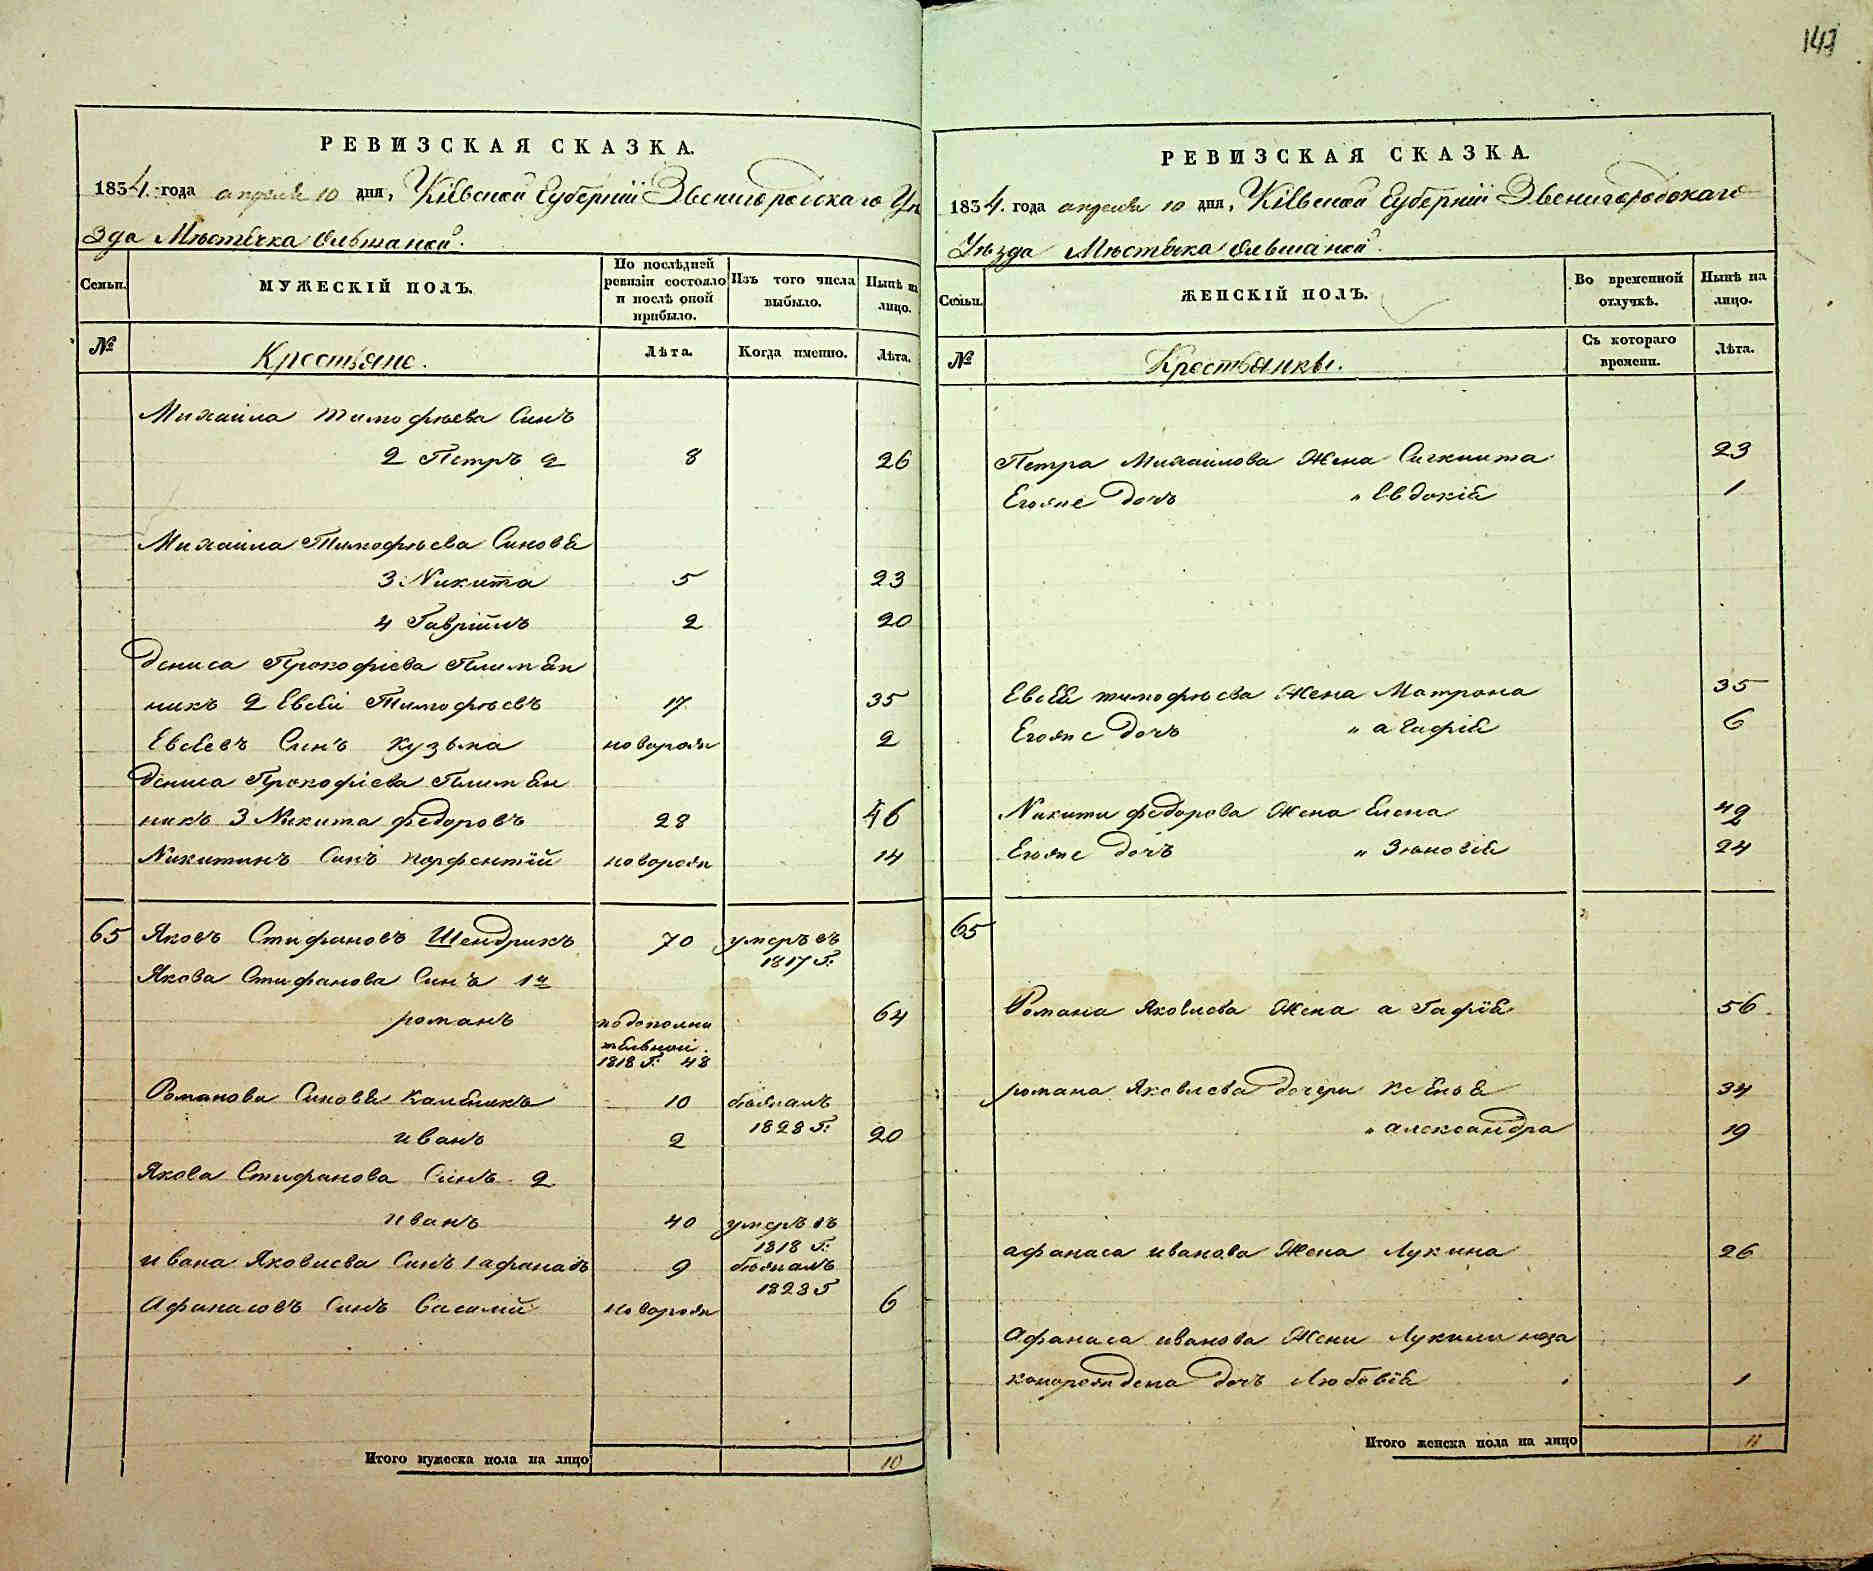 143
РЕВИЗСКАЯ СКАЗКА.
1834. года апреля 10 дня, Кіевской Губерніи Звенигородскаго Уѣ
зда Мѣстечка Ольшаной.
Семьи.
МУЖЕСКІЙ ПОЛЪ.
По послѣдней ревизіи состояло и послѣ оной прибыло.
Изъ того числа выбыло.
Нынѣ на лицо.
№
Крестьяне.
Лѣта.
Когда именно.
Лѣта.
Михаила Тимофѣева Синъ
2 Петръ 2 8 26
Михаила Тимофѣева Синовя
3 Никита 5 23
4 Гавріилъ 2 20
Дениса Прокофіева Племян
никъ 2 Евсей Тимофѣевъ 17 35
Евсеевъ Синъ Кузьма новорож 2
Дениса Прокофіева Племян
никъ 3 Никита Федоровъ 28 46
Никитинъ Синъ Парфентій новорож 14
65 Яковъ Стифановъ Шендрикъ 70 умеръ въ
1817 Г:
Якова Стифанова Синъ 1й
романъ 64
подополни
тельной
1818 Г: 48
Романова Синовя 10 бѣжалъ
1828 Г:
иванъ 2 20
Якова Стифанова Синъ 2
иванъ 40 умеръ въ
1818 Г:
ивана Яковлева Синъ 1 афанасъ 9 бѣжалъ
1828 Г
Афанасовъ Синъ Василій новорож 6
Итого мужеска пола на лицо 10
РЕВИЗСКАЯ СКАЗКА.
1834. года апреля 10 дня, Кіевской Губерніи Звенигородскаго
Уѣзда Мѣстечка Ольшаной.
Семьи.
ЖЕНСКІЙ ПОЛЪ.
Во временной отлучкѣ.
Нынѣ на лицо.
№
Крестьянки.
Съ котораго времени.
Лѣта.
Петра Михаилова Жена 23
Егожне Дочъ „ Евдокія 1
Евсея тимофѣева Жена Матрона 35
Егожне Дочъ „ агафія 6
Никити федорова Жена Елена 42
Егожне Дочъ „ Зѣновія 24
65
Романа Яковлева Жена агафія 56
романа Яковлева Дочери Ксеня 34
„ александра 19
афанаса иванова Жена Лукина 26
Афанаса иванова Жени Лукини неза
конорождена Дочъ Любовія 1
Итого женска пола на лицо 11